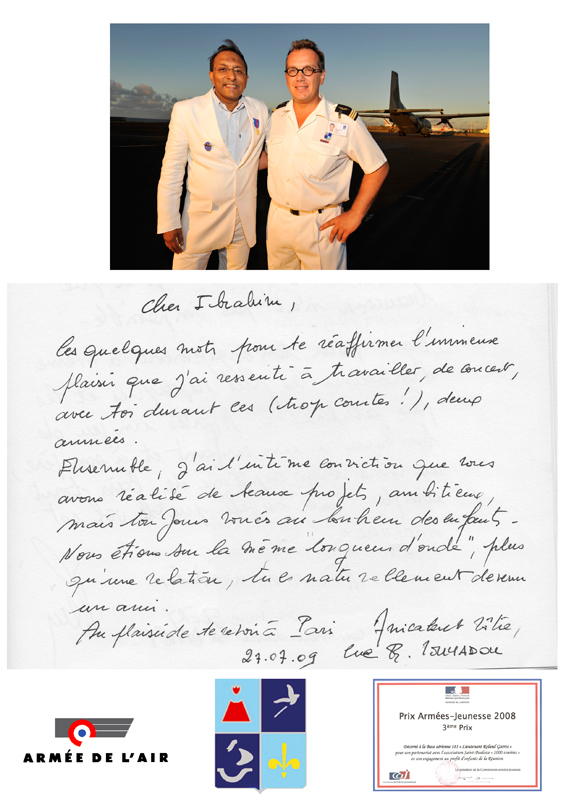 Cher Ibrahim,
Ces quelques mots pour te réaffirmer l'immense
plaisir que j'ai ressenti à travailler, de concert,
avec toi durant ces (trop courtes !), deux
années.
Ensemble, j'ai l'intime conviction que nous
avons réalisé de beaux projets, ambitieux,
mais toujours voués au bonheur des enfants.
Nous étions sur la même "longueur d'onde", plus
qu'une relation, tu es naturellement devenu
un ami.
Au plaisir de te revoir à Paris
Amicalement vôtre,
27.07.09
Luc
ARMÉE DE L'AIR
Prix Armées-Jeunesse 2008
3ème Prix
Décerné à la Base aérienne 181 « Lieutenant Roland Garros »
pour son partenariat avec l'association Saint-Pauloise « 1000 sourires »
et son engagement au profit d'enfants de la Réunion.